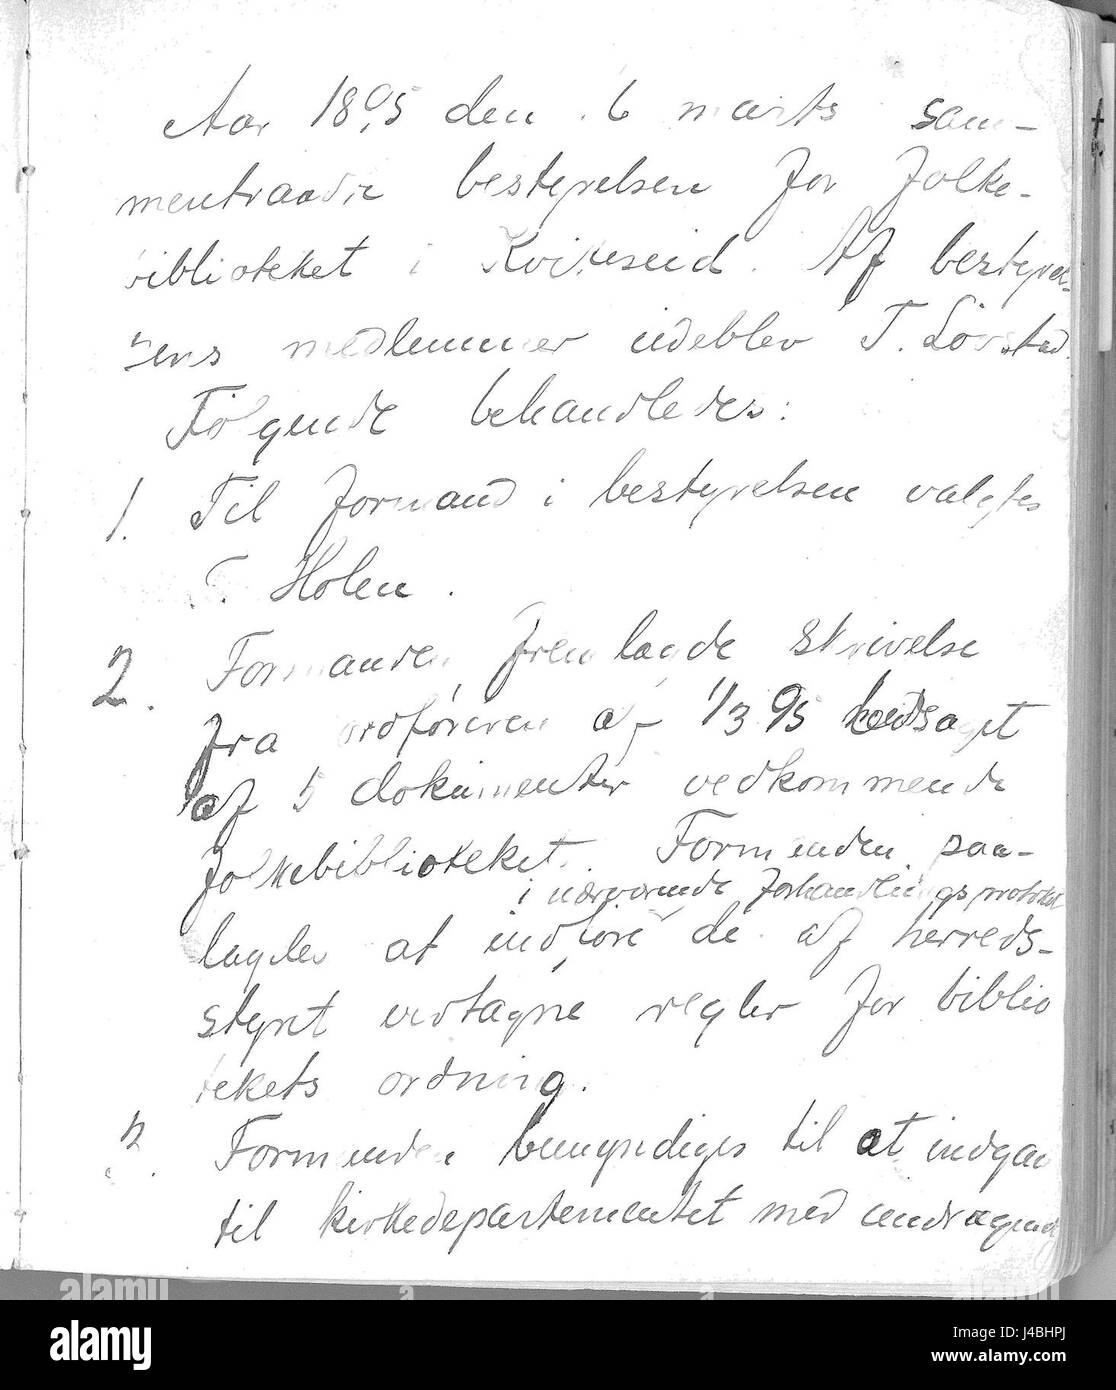 Aar 1895 den 6 marts sam-
mentraadte bestyrelsen for folke-
biblioteket i Kviteseid. Af bestyrel-
sens medlemmer udeblev T. Lövstad.
Følgende behandledes:
1. Til formand i bestyrelsen valgtes
T. Holen.
2. Formanden fremlagde skrivelse
fra ordføreren af 1/3 95 ledsaget
af 5 dokumenter vedkommende
folkebiblioteket. Formanden paa-
i nærværende forhandlingsprotokol
lagdes at indføre de af herreds-
styret vedtagne regler for biblio
tekets ordning.
3. Formanden bemyndiges til at indgaa
til kirkedepartementet med andragende
alamy
a
a
alamy
alamy
Image ID: J4BHPJ
www.alamy.com